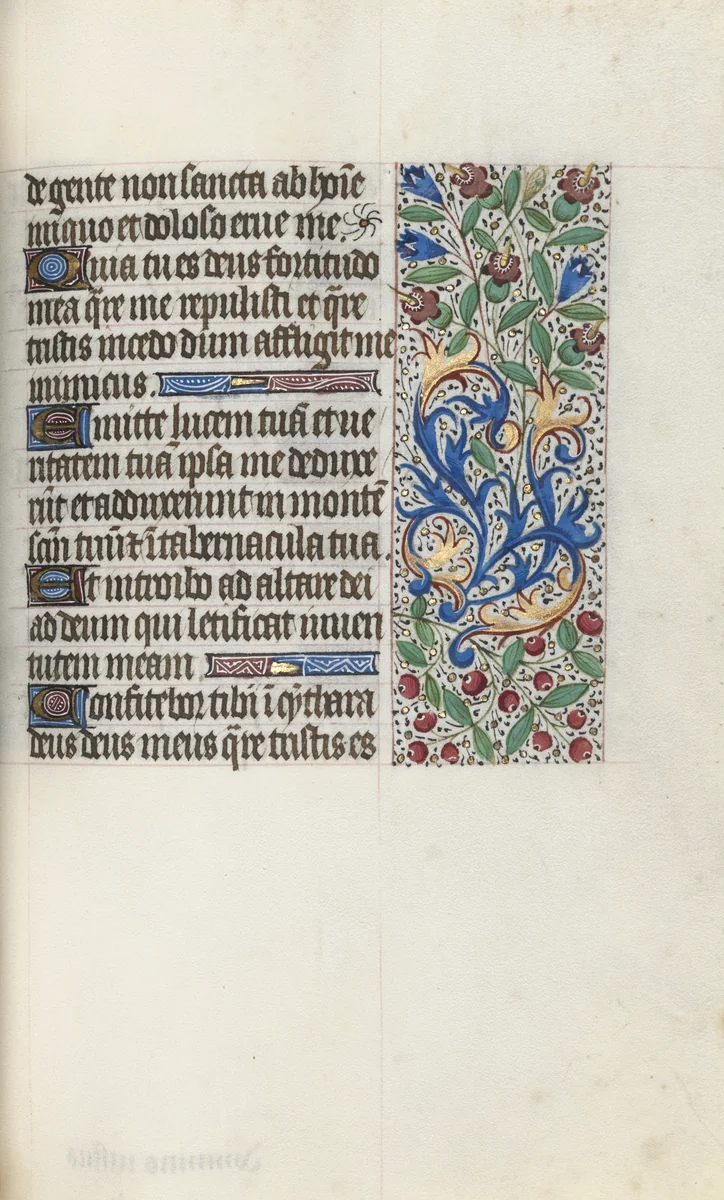 de gente non sancta ab hoīe
iniquo et doloso erue me.
Quia tu es deus fortitudo
mea q̄re me repulisti et q̄re
tristis incedo dum affligit me
inimicus.
Emitte lucem tuā et ue
ritatem tuā ipsa me deduxe
rūt et adduxerunt in montē
scm̄ tuū et ī tabernacula tua.
Et introibo ad altare dei
ad deum qui letificat iuuen
tutem meam
Confitebor tibi ī cythara
deus deus meus q̄re tristis es